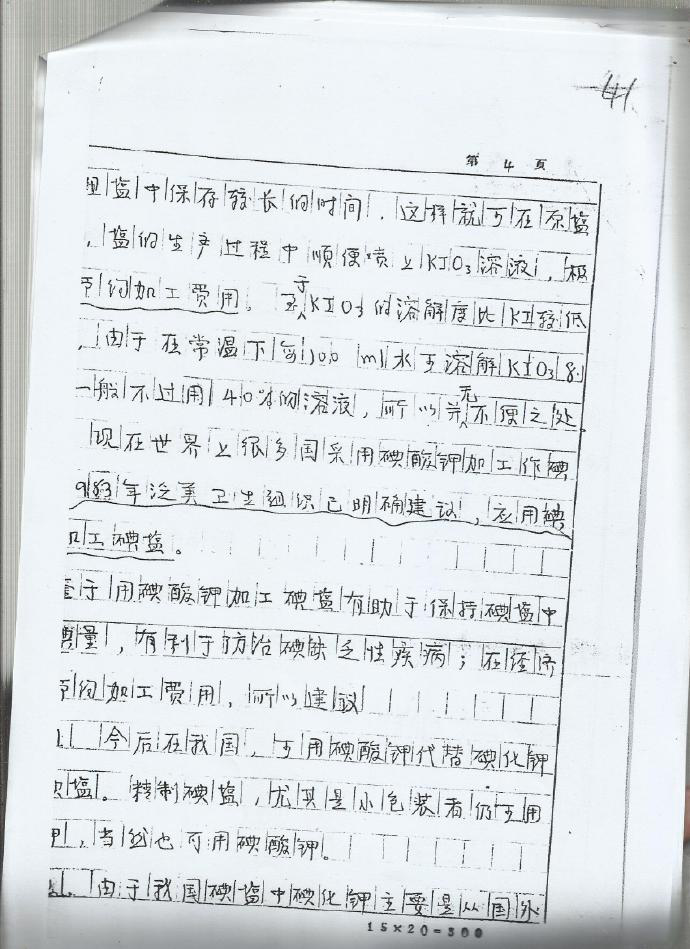 41
第 4 页
盐中保存较长的时间。这样就可在原盐
、盐的生产过程中顺便喷上KIO3溶液,极
节约加工费用。至于KIO3的溶解度比KI较低
,由于在常温下每100 ml水可溶解KIO3 8.
一般不过用40%的溶液,所以并无不便之处。
现在世界上很多国采用碘酸钾加工作碘
983年泛美卫生组织已明确建议,应用碘
加工碘盐。
于用碘酸钾加工碘盐有助于保持碘盐中
量,有利于防治碘缺乏性疾病;在经济
节约加工费用,所以建议
1. 今后在我国,可用碘酸钾代替碘化钾
盐。精制碘盐,尤其是小包装者仍可用
,当然也可用碘酸钾。
由于我国碘盐中碘化钾主要是从国外
15×20=300